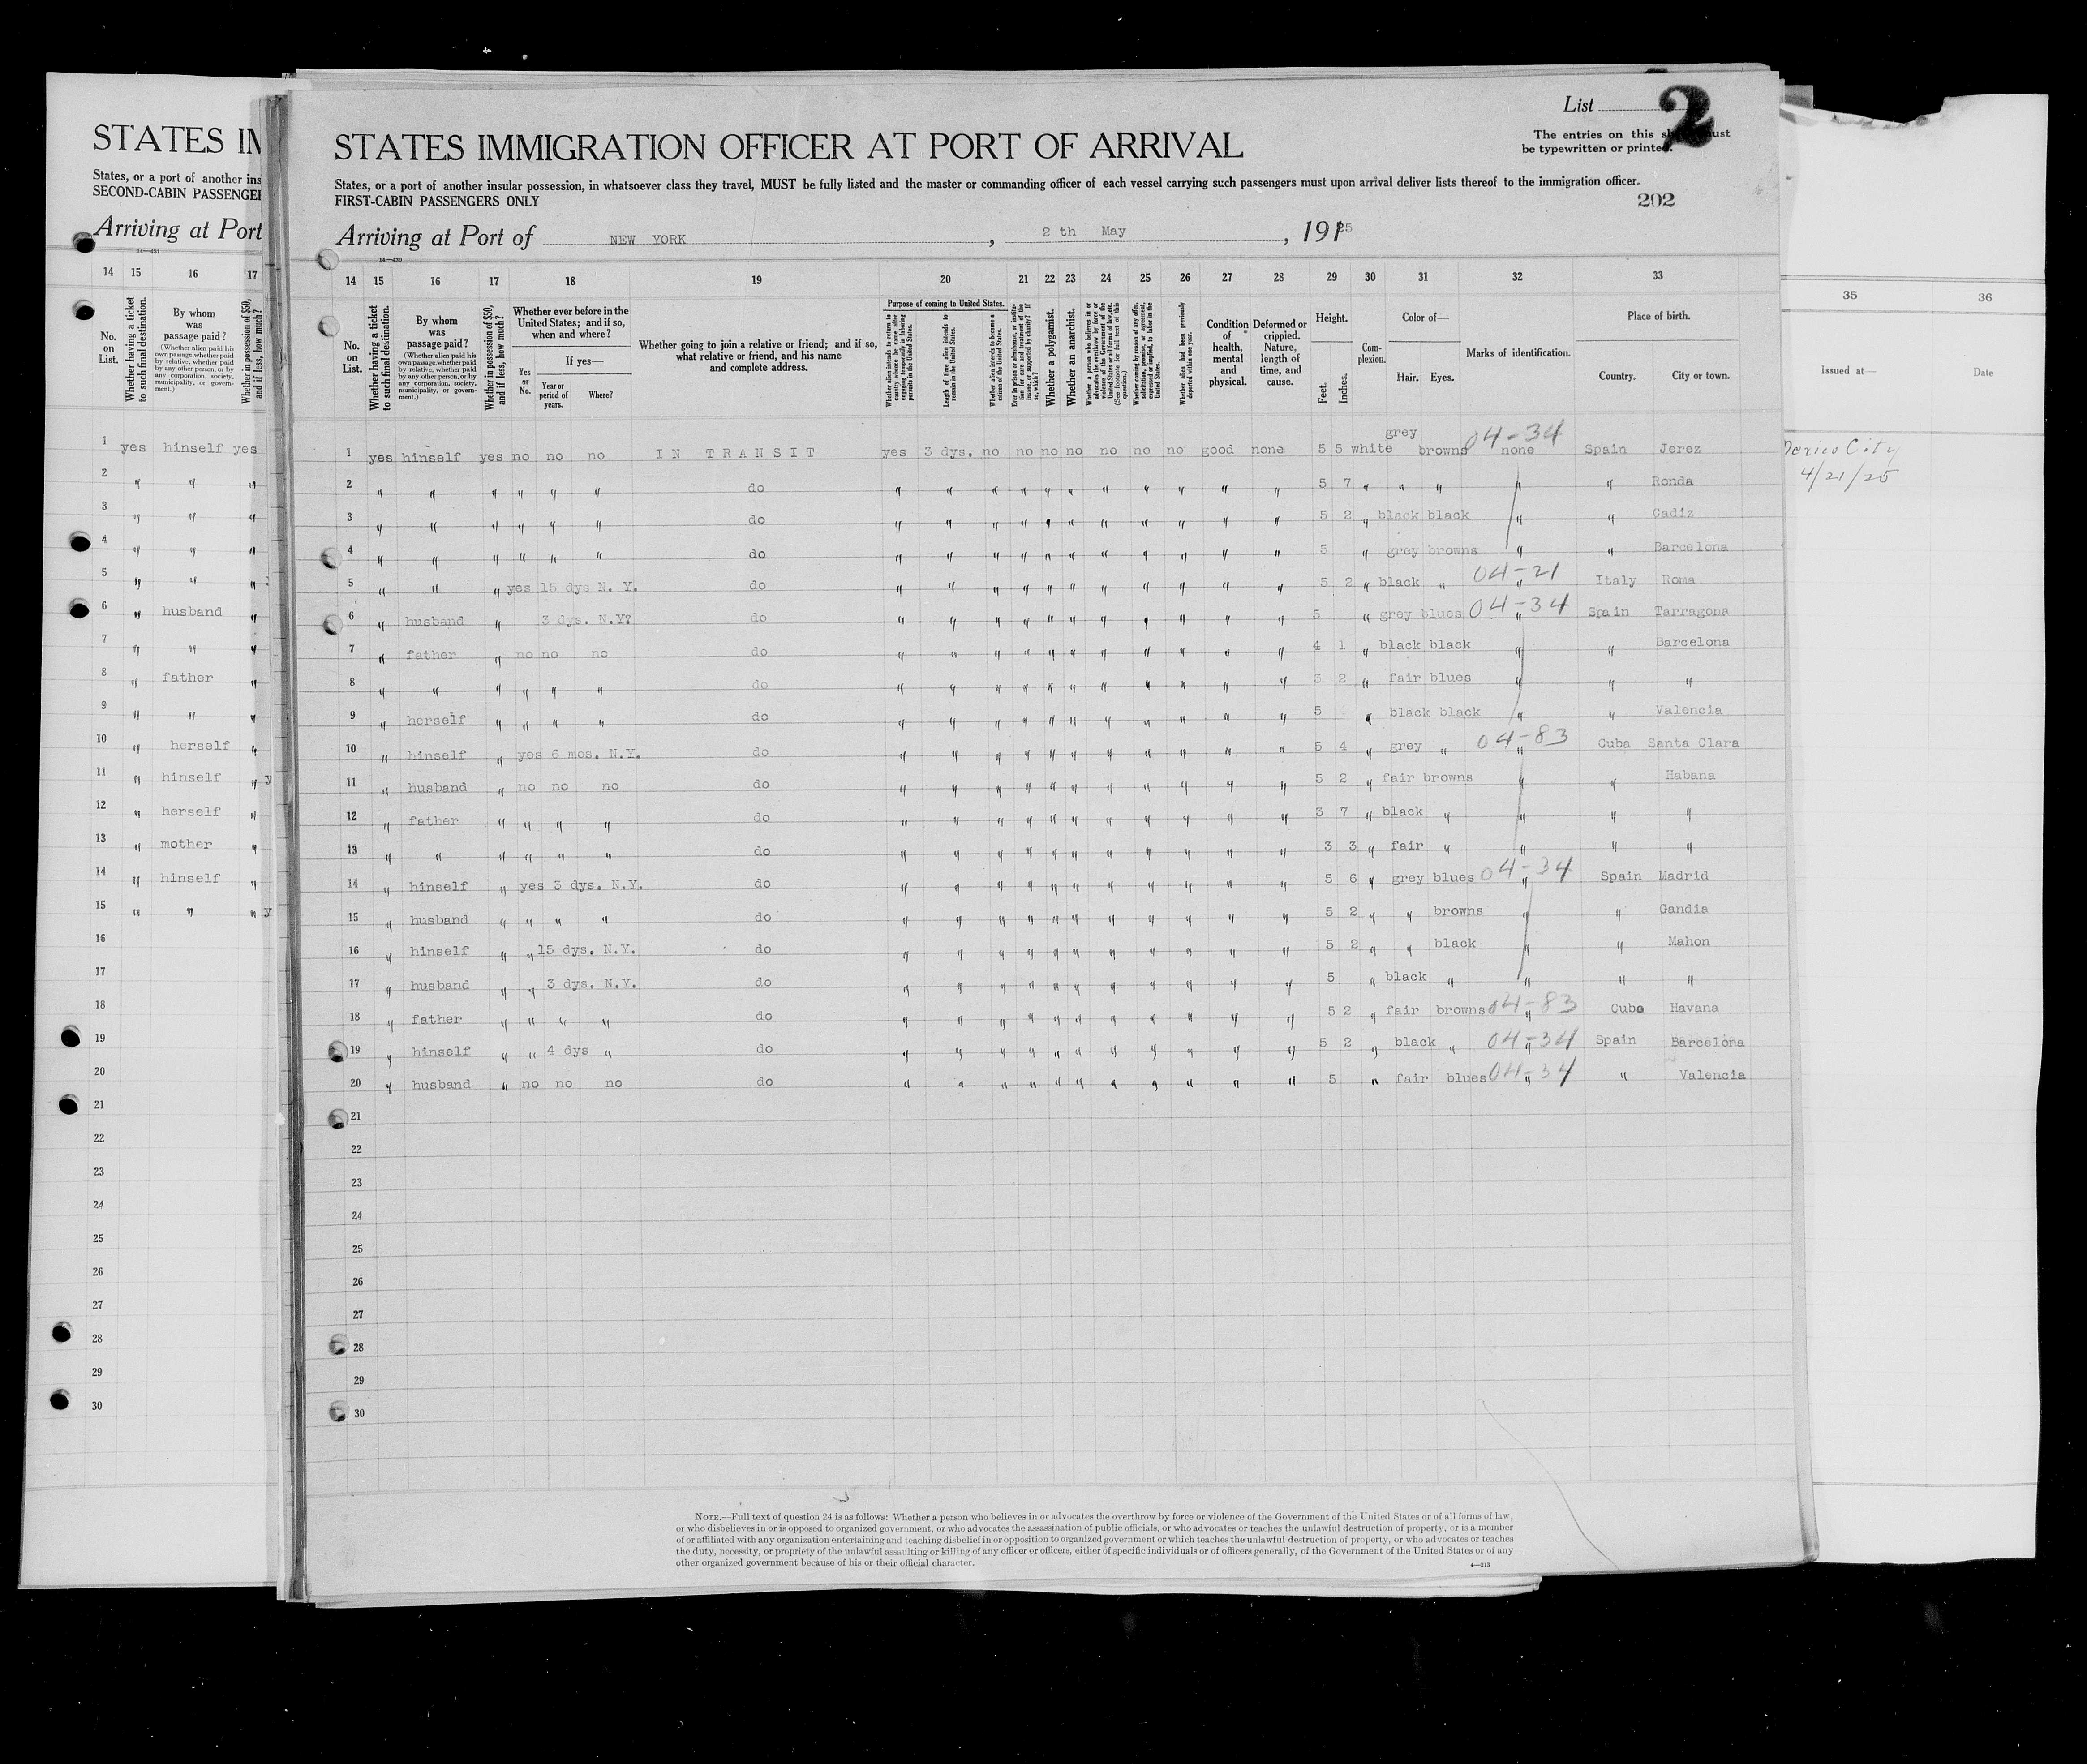 STATES IM
States, or a port of another ins
SECOND-CABIN PASSENGE
Arriving at Port
14—431
14 15 16 17
No. on List.
Whether having a ticket to such final destination.
By whom was passage paid?
(Whether alien paid his own passage, whether paid by relative, whether paid by any other person, or by any corporation, society, municipality, or government.)
Whether in possession of $50, and if less, how much?
1 yes hinself yes
2 " " "
3 " " "
4 " " "
5 " " "
6 " husband "
7 " " "
8 " father "
9 " " "
10 " herself "
11 " hinself " y
12 " herself "
13 " mother "
14 " hinself "
15 " " " y
16
17
18
19
20
21
22
23
24
25
26
27
28
29
30
List 2
The entries on this sheet must
be typewritten or printed.
STATES IMMIGRATION OFFICER AT PORT OF ARRIVAL
States, or a port of another insular possession, in whatsoever class they travel, MUST be fully listed and the master or commanding officer of each vessel carrying such passengers must upon arrival deliver lists thereof to the immigration officer.
FIRST-CABIN PASSENGERS ONLY
202
Arriving at Port of NEW YORK, 2 th May, 1925
14—430
14 15 16 17 18 19 20 21 22 23 24 25 26 27 28 29 30 31 32 33
No. on List.
Whether having a ticket to such final destination.
By whom was passage paid?
(Whether alien paid his own passage, whether paid by relative, whether paid by any other person, or by any corporation, society, municipality, or government.)
Whether in possession of $50, and if less, how much?
Whether ever before in the United States; and if so, when and where?
If yes—
Yes or No.
Year or period of years.
Where?
Whether going to join a relative or friend; and if so, what relative or friend, and his name and complete address.
Purpose of coming to United States.
Length of time alien intends to remain in the United States.
Whether alien intends to become a citizen of the United States.
Whether a polygamist.
Whether an anarchist.
Whether alien had been previously deported within one year.
Condition of health, mental and physical.
Deformed or crippled. Nature, length of time, and cause.
Height.
Feet. Inches.
Complexion.
Color of—
Hair. Eyes.
Marks of identification.
Place of birth.
Country. City or town.
1 yes hinself yes no no no IN TRANSIT yes 3 dys. no no no no no no no good none 5 5 white grey browns 04-34 none Spain Jerez
2 " " " " " " do " " " " " " " " " " " 5 7 " " " " " Ronda
3 " " " " " " do " " " " " " " " " " " 5 2 " black black " " Cadiz
4 " " " " " " do " " " " " " " " " " " 5 " grey browns " " Barcelona
5 " " " yes 15 dys N. Y. do " " " " " " " " " " " 5 2 " black " 04-21 " Italy Roma
6 " husband " 3 dys. N.Y? do " " " " " " " " " " " 5 " grey blues 04-34 " Spain Tarragona
7 " father " no no no do " " " " " " " " " " " 4 1 " black black " " Barcelona
8 " " " " " " do " " " " " " " " " " " 3 2 " fair blues " " "
9 " herself " " " " do " " " " " " " " " " " 5 " black black " " Valencia
10 " hinself " yes 6 mos. N.Y. do " " " " " " " " " " " 5 4 " grey " 04-83 " Cuba Santa Clara
11 " husband " no no no do " " " " " " " " " " " 5 2 " fair browns " " Habana
12 " father " " " " do " " " " " " " " " " " 3 7 " black " " " "
13 " " " " " " do " " " " " " " " " " " 3 3 " fair " " " "
14 " hinself " yes 3 dys. N.Y. do " " " " " " " " " " " 5 6 " grey blues 04-34 " Spain Madrid
15 " husband " " " " do " " " " " " " " " " " 5 2 " " browns " " Gandia
16 " hinself " " 15 dys. N.Y. do " " " " " " " " " " " 5 2 " " black " " Mahon
17 " husband " " 3 dys. N.Y. do " " " " " " " " " " " 5 " black " " " "
18 " father " " " " do " " " " " " " " " " " 5 2 " fair browns 04-83 " Cuba Havana
19 " hinself " " 4 dys " do " " " " " " " " " " " 5 2 " black " 04-34 " Spain Barcelóna
20 " husband " no no no do " " " " " " " " " " " 5 " fair blues 04-34 " " Valencia
21
22
23
24
25
26
27
28
29
30
NOTE.—Full text of question 24 is as follows: Whether a person who believes in or advocates the overthrow by force or violence of the Government of the United States or of all forms of law,
or who disbelieves in or is opposed to organized government, or who advocates the assassination of public officials, or who advocates or teaches the unlawful destruction of property, or is a member
of or affiliated with any organization entertaining and teaching disbelief in or opposition to organized government or which teaches the unlawful destruction of property, or who advocates or teaches
the duty, necessity, or propriety of the unlawful assaulting or killing of any officer or officers, either of specific individuals or of officers generally, of the Government of the United States or of any
other organized government because of his or their official character.
4—213
35 36
Issued at— Date
Mexico City
4/21/25